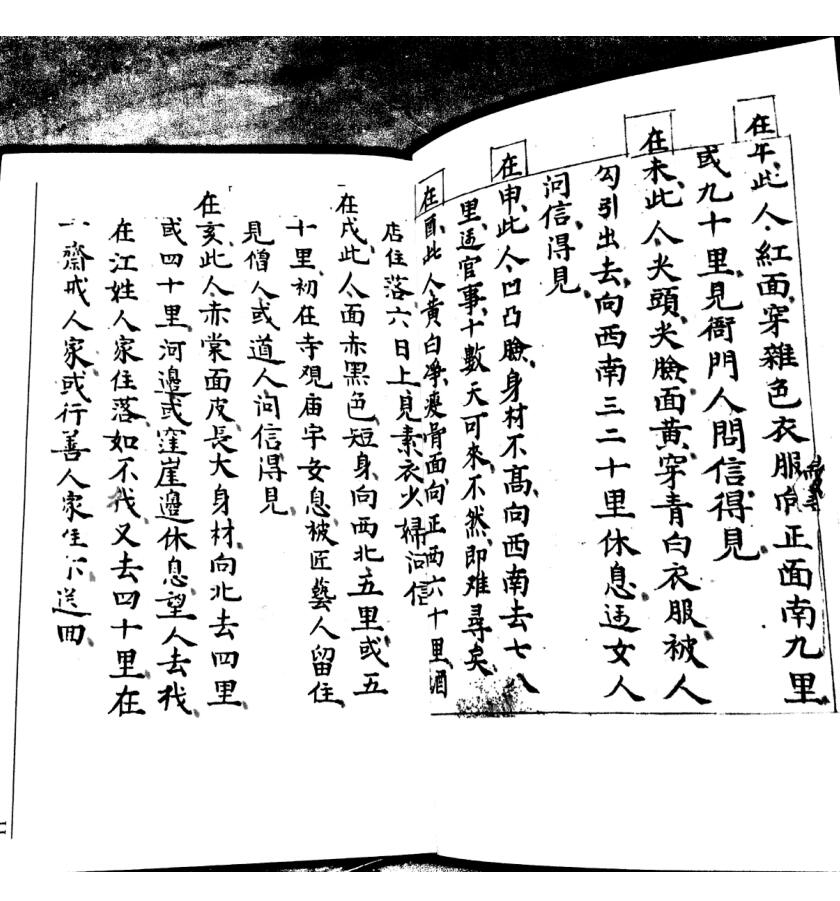 在午、此人、紅面、穿雜色衣服、向正面南九里
或九十里、見衙門人問信得見、
在未、此人、尖頭、尖臉、面黄、穿青白衣服、被人
勾引出去、向西南三二十里休息、遇女人
问信得見、
在申、此人、凹凸臉、身材不高、向西南去七八
里、遇官事、十數天可來、不然、即难尋矣、
在酉、此人黄白净、瘦骨面、向正西六十里、酒
店住落、六日上、見素衣少婦问信
在戌、此人、面赤黑色、短身、向西北五里、或五
十里、初在寺观庙宇安息、被匠藝人留住、
見僧人或道人问信得見、
在亥、此人、赤棠面皮、長大身材、向北去四里、
或四十里、河邊或窪崖邊休息、望人去找、
在江姓人家住落、如不找、又去四十里、在
一齋戒人家、或行善人家住下、送回、